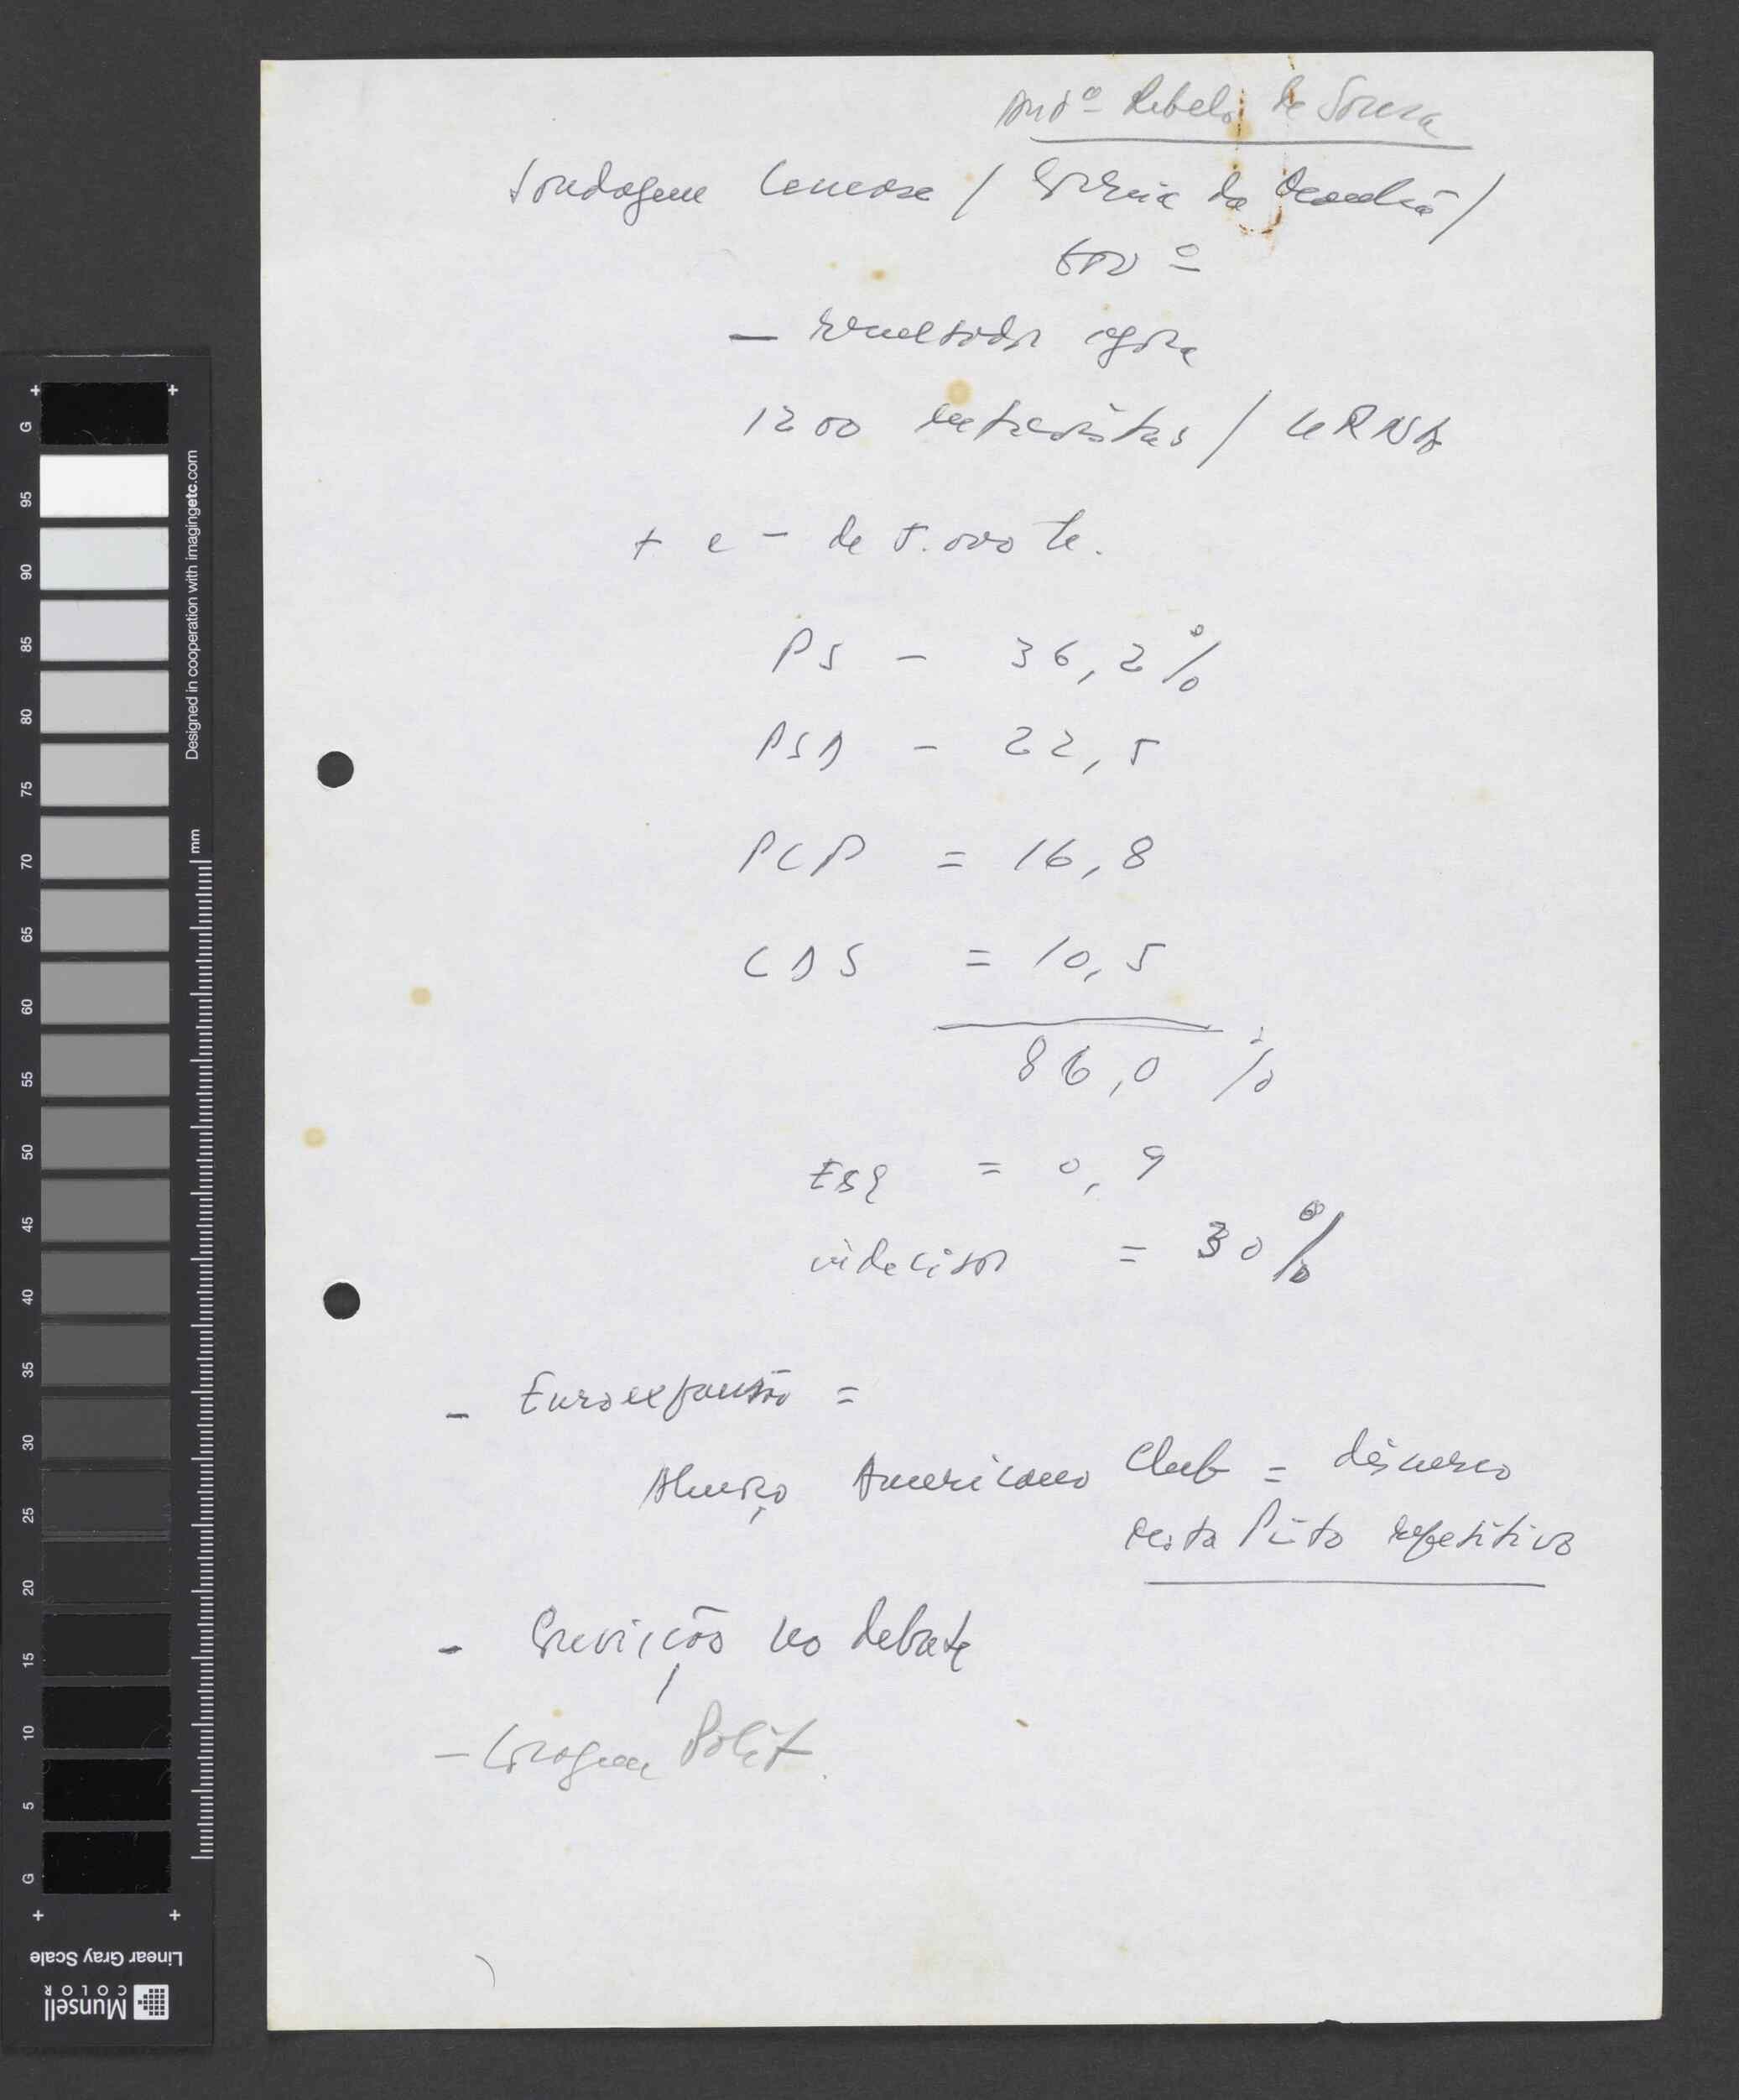 Antº Rebelo de Sousa
Sondagem / Correio da Manhã /
- resultados agora
1200 entrevistas /
+ e - de 5.000 h.
PS - 36,2%
PSD - 22,5
PCP = 16,8
CDS = 10,5
86,0 %
ESQ = 0,9
indecisos = 30%
- Euroexpansão =
Almoço Americano Club = discurso
Mota Pinto repetitivo
- Convicção no debate
- Coragem Polit.
G 95 90 85 80 75 70 65 60 55 50 45 40 35 30 25 20 15 10 5 G
Designed in cooperation with imagingetc.com
mm
Linear Gray Scale
Munsell
COLOR